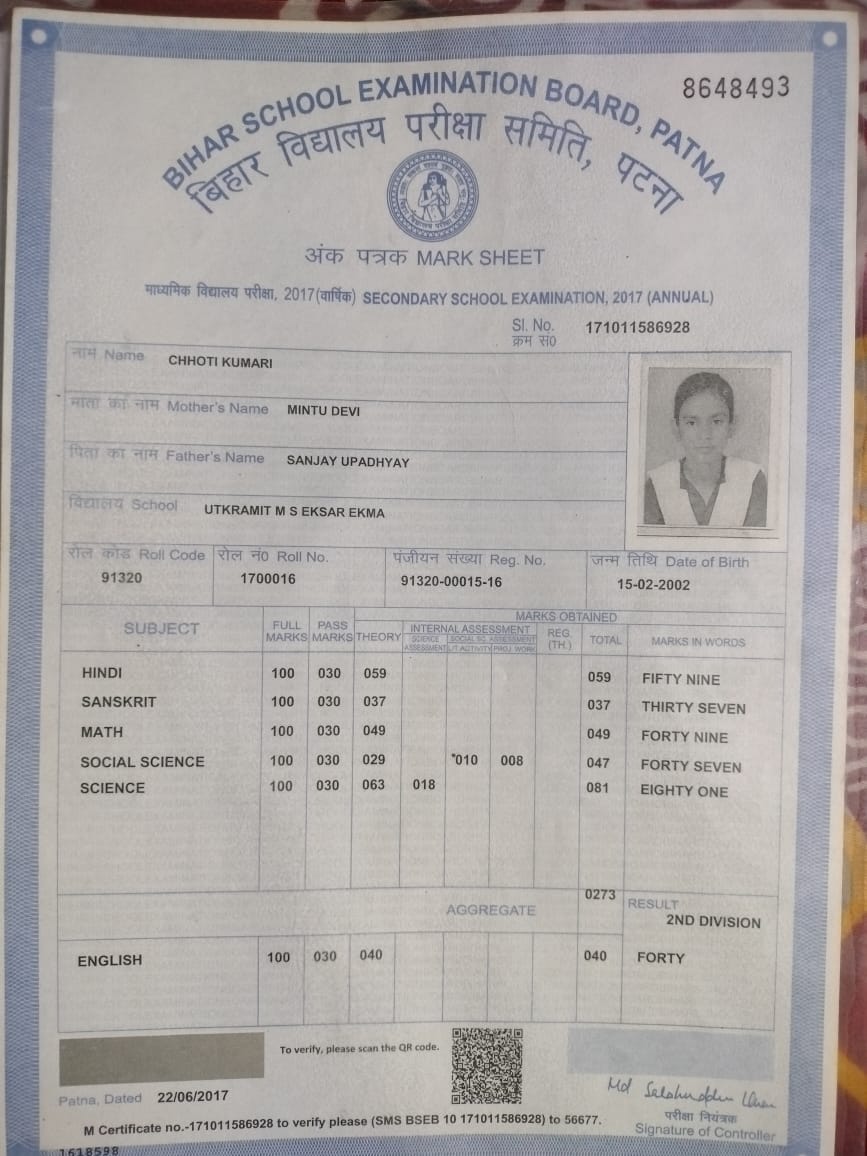 8648493
BIHAR SCHOOL EXAMINATION BOARD, PATNA
बिहार विद्यालय परीक्षा समिति, पटना
अंक पत्रक MARK SHEET
माध्यमिक विद्यालय परीक्षा, 2017(वार्षिक) SECONDARY SCHOOL EXAMINATION, 2017 (ANNUAL)
Sl. No. 171011586928
क्रम सं०
नाम Name CHHOTI KUMARI
माता का नाम Mother's Name MINTU DEVI
पिता का नाम Father's Name SANJAY UPADHYAY
विद्यालय School UTKRAMIT M S EKSAR EKMA
रोल कोड Roll Code रोल नं० Roll No. पंजीयन संख्या Reg. No. जन्म तिथि Date of Birth
91320 1700016 91320-00015-16 15-02-2002
MARKS OBTAINED
SUBJECT FULL MARKS PASS MARKS THEORY INTERNAL ASSESSMENT REG. (TH.) TOTAL MARKS IN WORDS
SCIENCE ASSESSMENT SOCIAL SC. ASSESSMENT LIT ACTIVITY PROJ. WORK
HINDI 100 030 059 059 FIFTY NINE
SANSKRIT 100 030 037 037 THIRTY SEVEN
MATH 100 030 049 049 FORTY NINE
SOCIAL SCIENCE 100 030 029 *010 008 047 FORTY SEVEN
SCIENCE 100 030 063 018 081 EIGHTY ONE
AGGREGATE 0273 RESULT
2ND DIVISION
ENGLISH 100 030 040 040 FORTY
To verify, please scan the QR code.
Patna, Dated 22/06/2017
Md Salahuddin Khan
परीक्षा नियंत्रक
Signature of Controller
M Certificate no.-171011586928 to verify please (SMS BSEB 10 171011586928) to 56677.
1618598